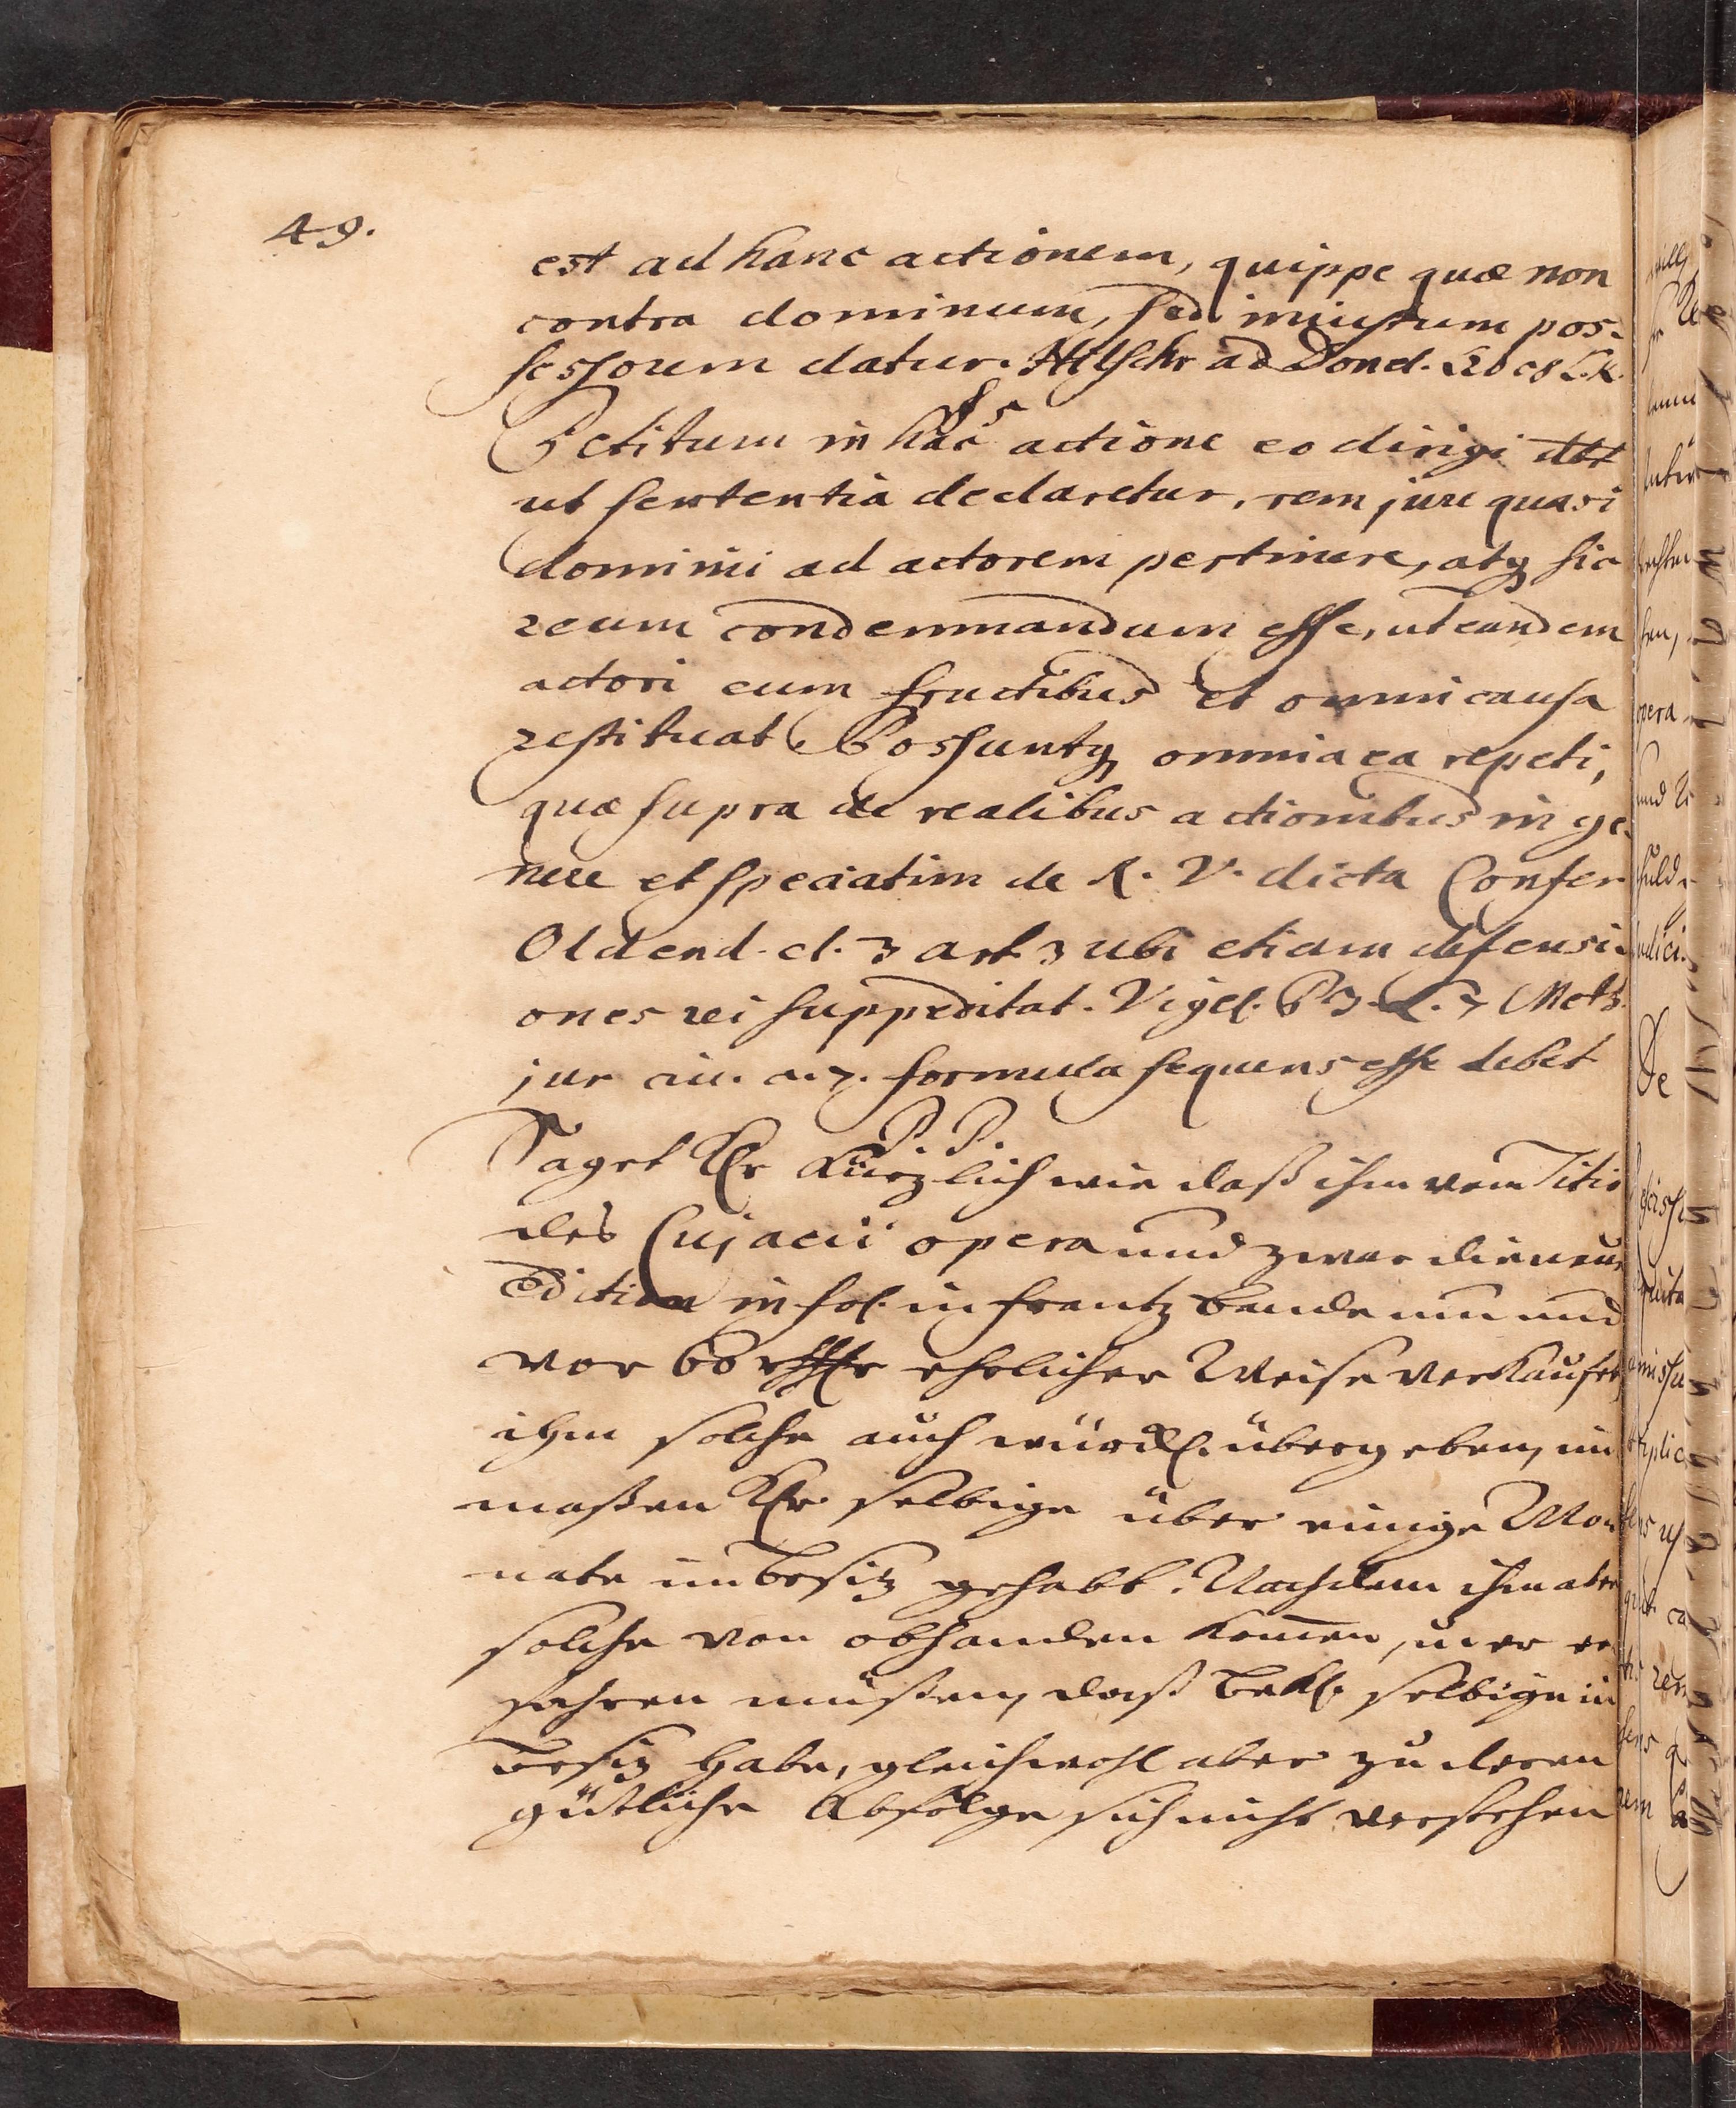 49.
est ad hanc actionem, quippe quæ non
contra dominum, sed iniustum pos-
sessorem datur. Hilschr ad Donel. L 20 c 8 L. K.
§ 5
Petitum in hac actione eo dirigi debet
ut sententia declaretur, rem jure quasi
dominii ad actorem pertinere, atq sic
reum condemnandum esse, ut eandem
actori cum fructibus et omni causa
restituat. Possuntq omnia ea repeti,
quæ supra de realibus actionibus in ge-
nere et speciatim de R. V. dicta Confer
Oldend. cl. 3 art 3 ubi etiam defensi-
ones rei suppeditat. Vigel. P 3. L. 7 Meth.
jur civ. c. 7. formula sequens esse debet
P. P.
Saget Kl. kürzlich wie daß ihm von Titio
des Cujacii opera und zwar die neue
Edition in fol. in frantz bande um und
vor 60 rthlr ehrlicher Weise verkaufet,
ihm solche auch würckl. übergeben, im
maßen Kl. selbige über einige Mo-
nate im besitz gehabt. Nachdem ihm aber
solche von abhanden kom̅en, u. er er-
fahren müßen, daß Bekl. selbige in
besitz habe, gleichwohl aber zu deren
gütliche Abfolge sich nicht verstehen